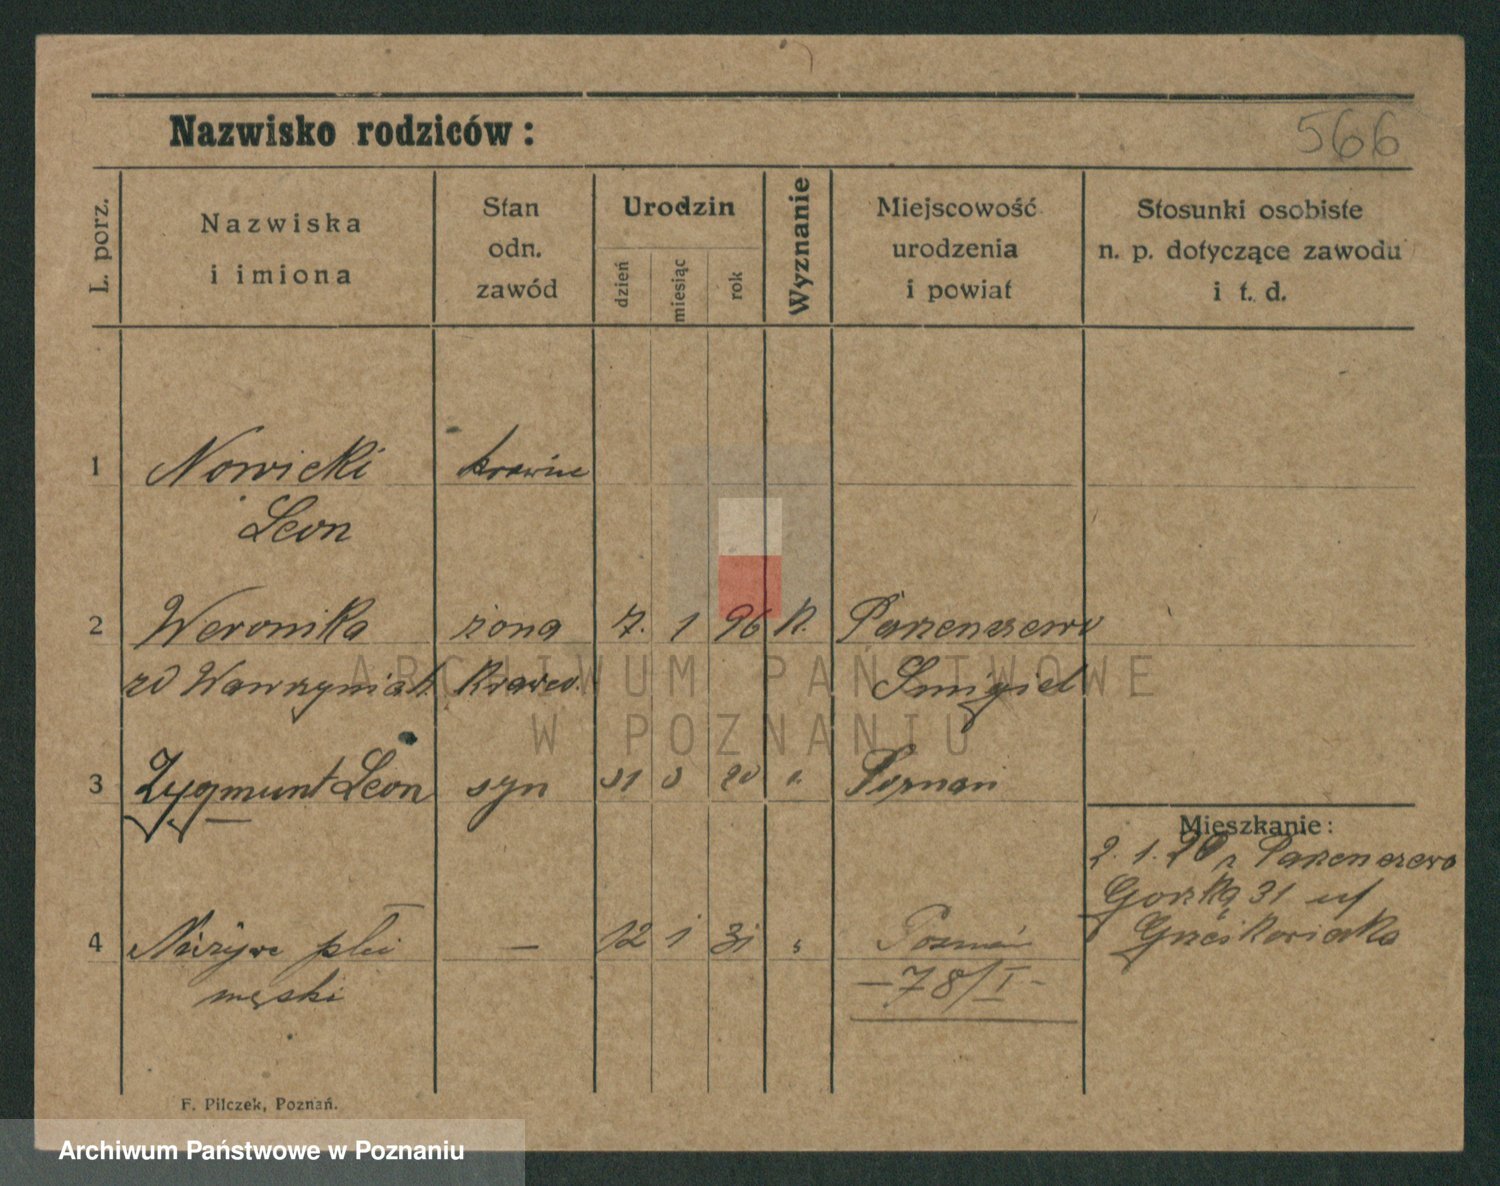 Nazwisko rodziców:
566
L. porz.
Nazwiska
i imiona
Stan
odn.
zawód
Urodzin
dzień
miesiąc
rok
Wyznanie
Miejscowość
urodzenia
i powiat
Stosunki osobiste
n. p. dotyczące zawodu
i t. d.
1 Nowicki
Leon
2 Weronika żona 7. 1 96 k.
zd Wawrzyniak Śmigiel
3 Zygmunt Leon syn 31 3 20 Poznań
Mieszkanie:
2. 1. 20
Gorzka 31 u/
4 Nieżywe płci — 12 1 31 " Poznań
męski —78/I-
F. Pilczek, Poznań.
ARCHIWUM PAŃSTWOWE
W POZNANIU
Archiwum Państwowe w Poznaniu